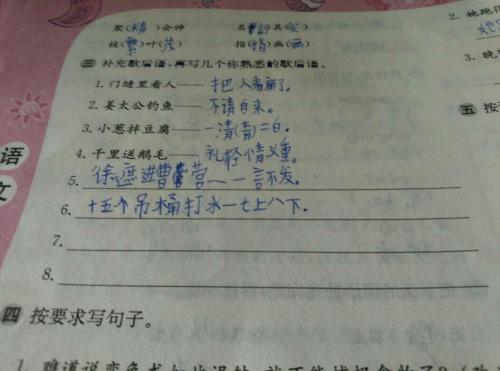 聚(精)会神 名(副)其(实)
枝(繁)叶(茂) 指(指)画(画)
三 补充歇后语,再写几个你熟悉的歇后语。
1. 门缝里看人——把人看扁了。
2. 姜太公钓鱼——不请自来。
3. 小葱拌豆腐——一清(青)二白。
4. 千里送鹅毛——礼轻情义重。
5. 徐庶进曹营——一言不发。
6. 十五个吊桶打水—七上八下.
7.
8.
四 按要求写句子。
2. 她跑得
3. 晚
五 按
语
文